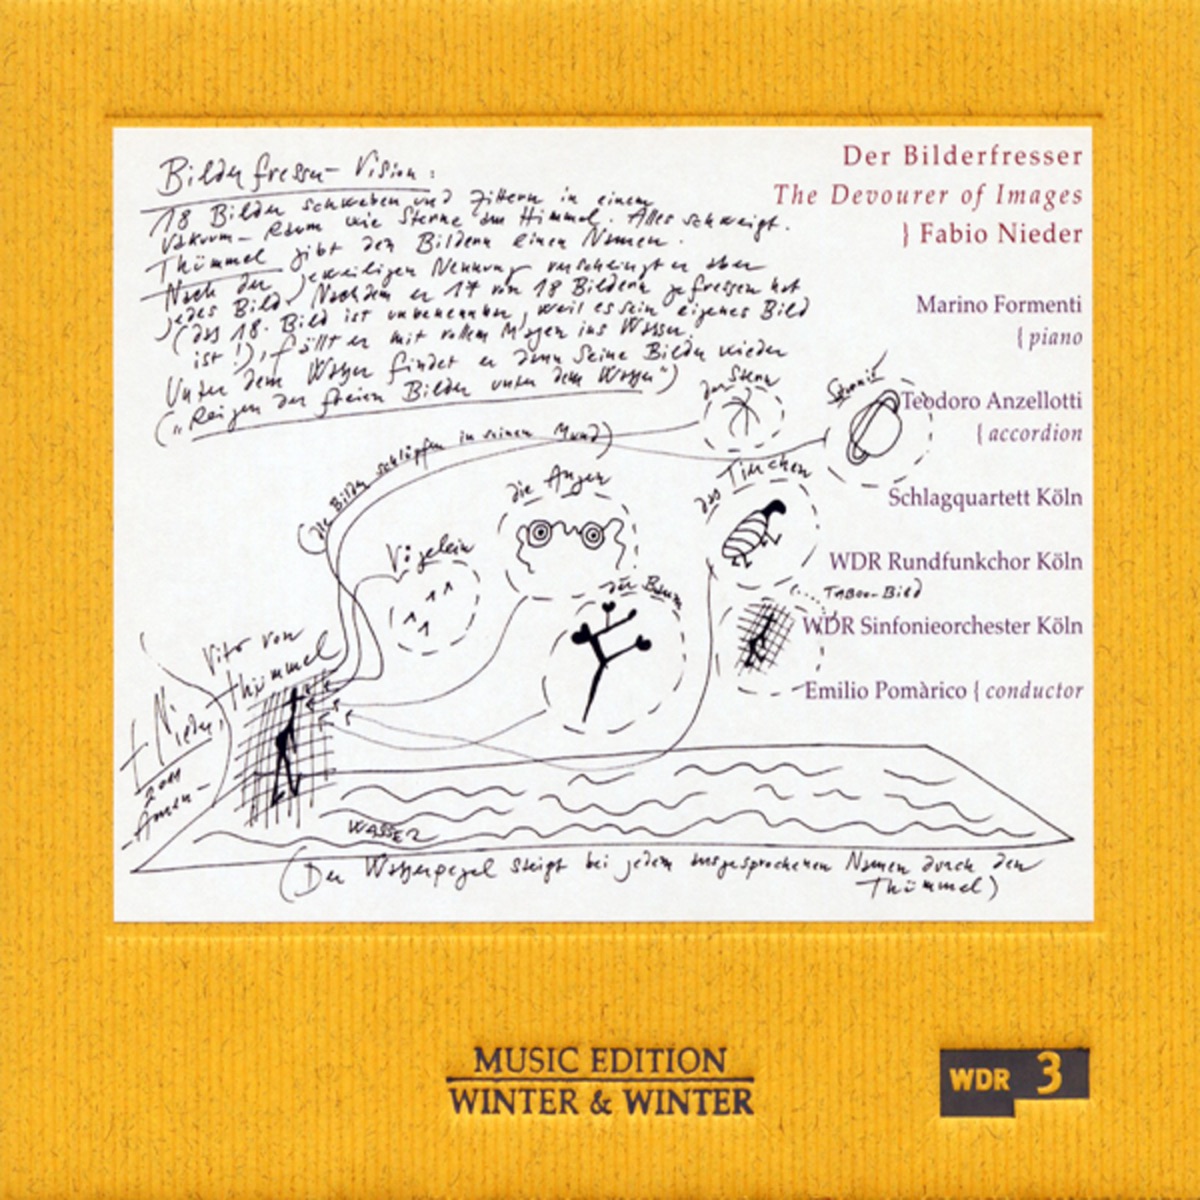 Der Bilderfresser
The Devourer of Images
} Fabio Nieder
Marino Formenti
{ piano
Teodoro Anzellotti
{ accordion
Schlagquartett Köln
WDR Rundfunkchor Köln
WDR Sinfonieorchester Köln
Emilio Pomàrico { conductor
Bilderfresser-Vision:
18 Bilder schweben und zittern in einem
Vakuum-Raum wie Sterne am Himmel. Alles schweigt.
Thümmel gibt den Bildern einen Namen.
Nach der jeweiligen Nennung verschlingt er aber
jedes Bild. Nachdem er 17 von 18 Bildern gefressen hat
(das 18. Bild ist unbenennbar, weil es sein eigenes Bild
ist!), fällt er mit vollem Magen ins Wasser.
Unter dem Wasser findet er dann seine Bilder wieder
("Reigen der freien Bilder unter dem Wasser")
(die Bilder schlüpfen in seinen Mund)
der Stern
Saturnis
die Augen
das Tierchen
Vögelein
der Baum
Taboo-Bild
Vito von
Thümmel
f. Nieder,
2011
Amen-
WASSER
(Der Wasserpegel steigt bei jedem ausgesprochenen Namen durch den
Thümmel)
MUSIC EDITION
WINTER & WINTER
WDR 3